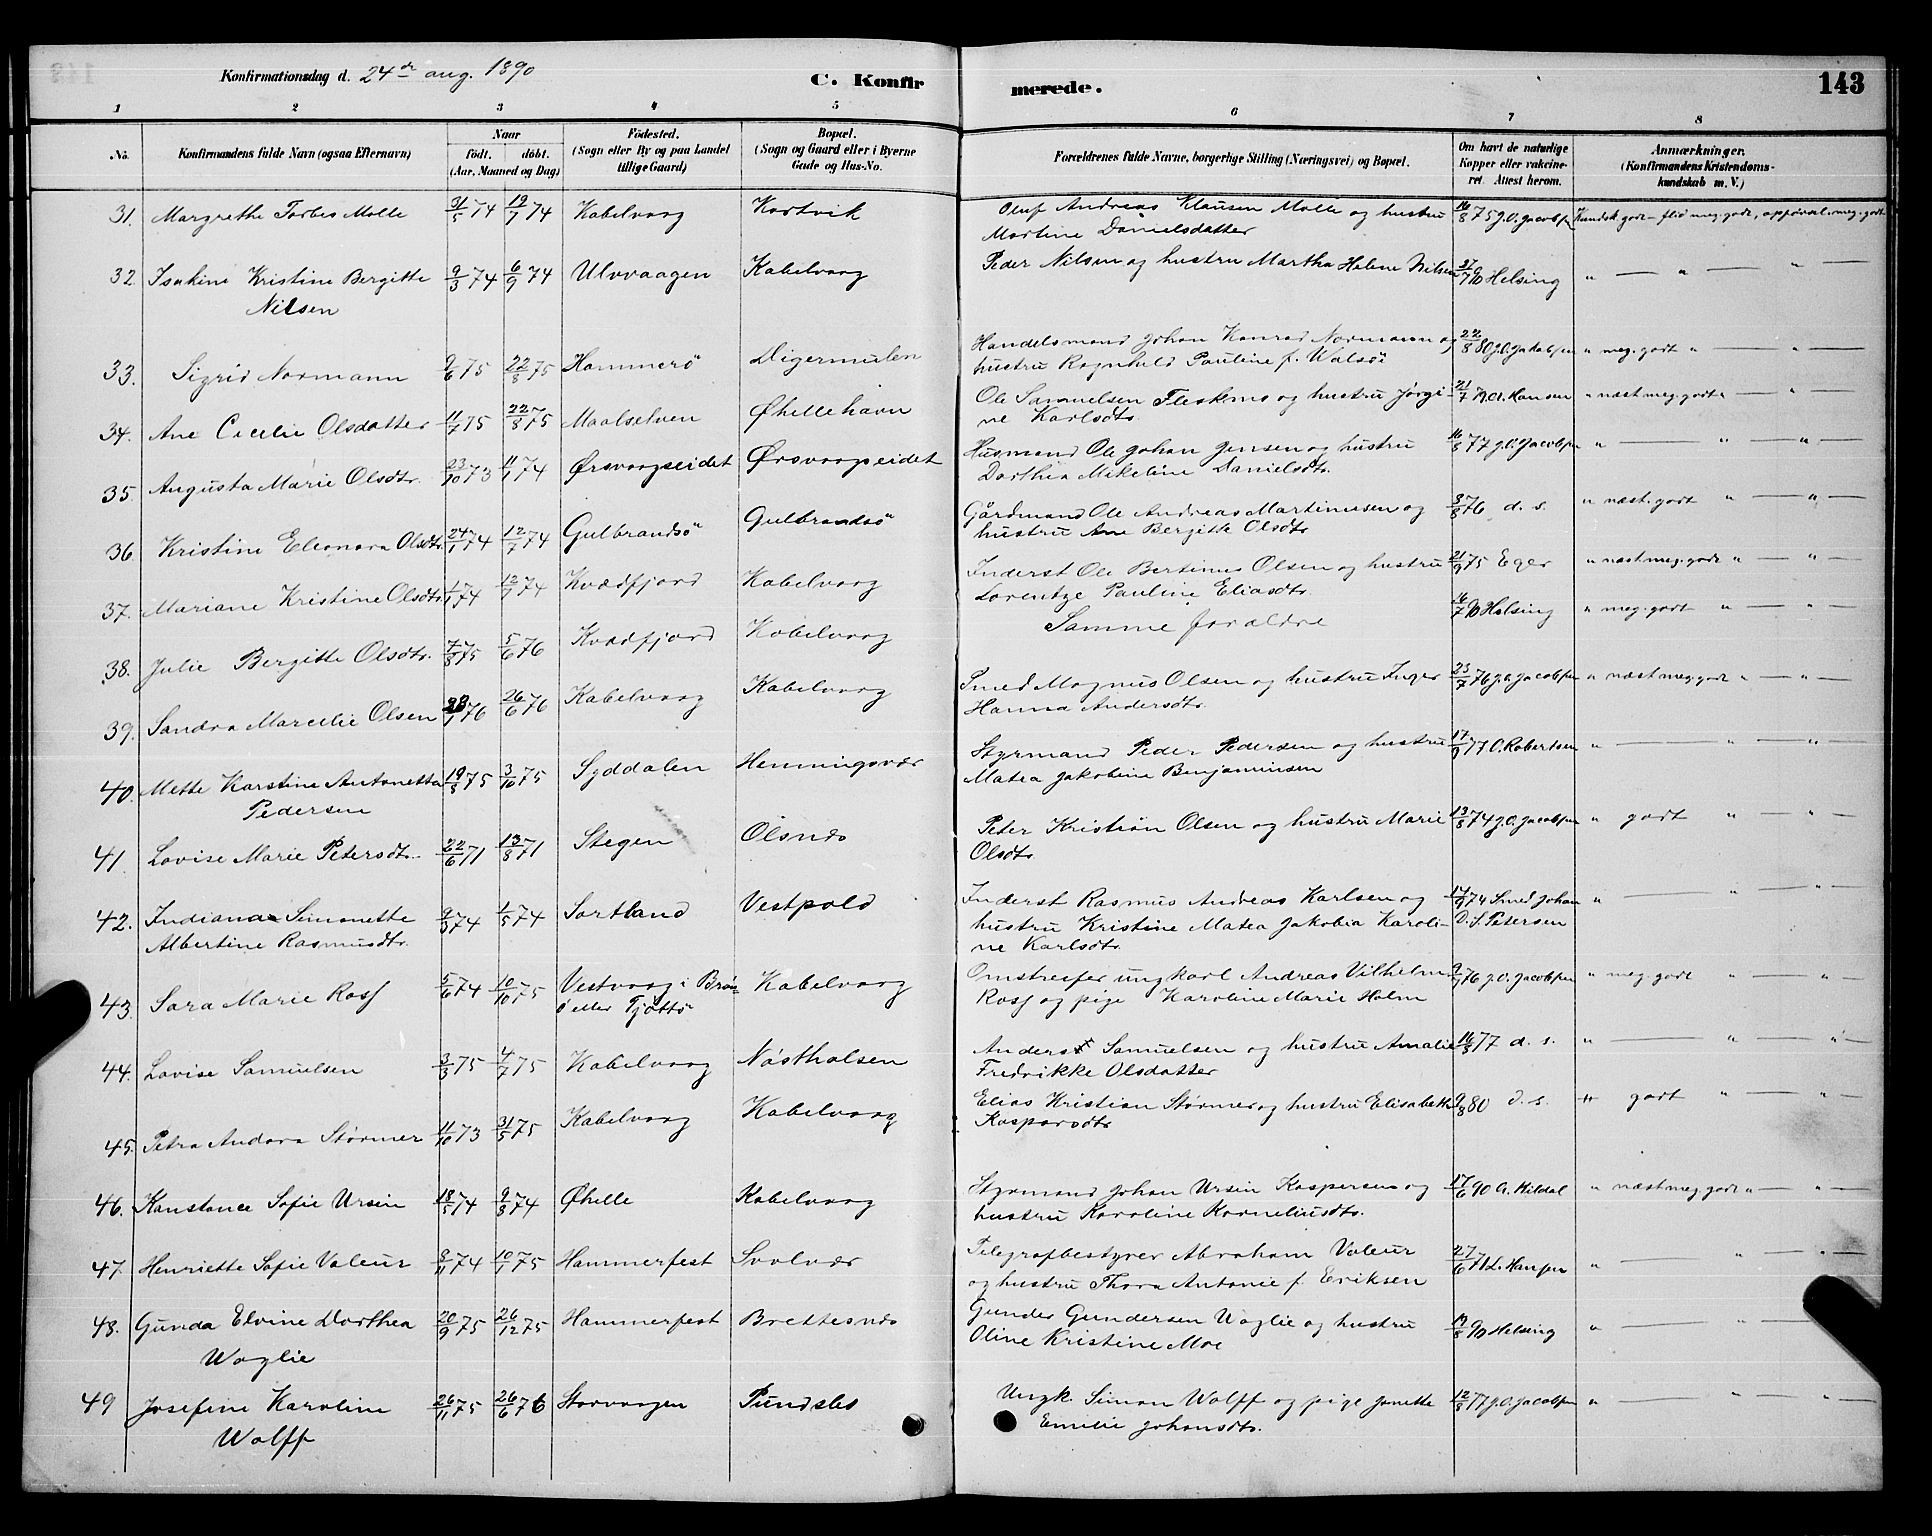 Konfirmationsdag d. 24de aug. 1890
C. Konfir
merede.
143
1 2 3 4 5 6 7 8
No. Konfirmandens fulde Navn (ogsaa Efternavn) Naar födt. döbt. (Aar, Maaned og Dag) Födested. (Sogn eller By og paa Landet tillige Gaard) Bopæl. (Sogn og Gaard eller i Byerne Gade og Hus-No. Forældrenes fulde Navne, borgerlige Stilling (Næringsvei) og Bopæl. Om havt de naturlige Kopper eller vakcineret. Attest herom. Anmærkninger. (Konfirmandens Kristendomskundskab m. V.)
31. Margrethe Torbes Molle 31/5 74 19/7 74 Kabelvaag Kartvik Oluf Andreas Klausen Molle og hustru 16/8 75 J.O. Jacobsen Kundsk. godt - flid meg. godt, opførsel meg. godt
Martine Danielsdatter
32. Isakine Kristine Bergitte 9/3 74 6/9 74 Ulvvaagen Kabelvaag Peder Nilsen og hustru Martha Helene Nilsen 27/7 90 Helsing " — " — " —
Nilsen
33. Sigrid Normann 9/6 75 22/8 75 Hammerö Digermulen Handelsmand Johan Konrad Normann og 22/8 80 J.O. Jakobsen " meg. godt " — " —
hustru Ragnhild Pauline f. Walsö
34. Ane Cecilie Olsdatter 11/7 75 22/8 75 Maalselven Øhellehavn Ole Samuelsen Fleskmo og hustru Jørgi- 21/7 79 A. Hansen " næst meg. godt " — " —
ne Karlsdtr.
35. Augusta Marie Olsdtr. 23/10 73 11/1 74 Ørsvaagseidet Ørsvaagseidet Husmand Ole Johan Jensen og hustru 16/8 77 J.O. Jacobsen " — " — " —
Dorthea Mikeline Danielsdtr.
36. Kristine Eleonora Olsdtr. 24/1 74 12/7 74 Gulbrandsö Gulbrandsö Gårdmand Ole Andreas Martinusen og 3/8 76 d. s. " næst. godt " — " —
hustru Ane Bergitte Olsdtr
37. Mariane Kristine Olsdtr. 1/1 74 12/7 74 Kvædfjord Kabelvaag Inderst Ole Bertinus Olsen og hustru 21/9 75 Eger " næst meg. godt " — " —
Lorentze Pauline Eliasdtr.
38. Julie Bergitte Olsdtr. 7/8 75 5/6 76 Kvædfjord Kabelvaag Samme forældre 16/7 90 Helsing " meg. godt " — " —
39. Sandra Marcelie Olsen 23/1 76 26/6 76 Kabelvaag Kabelvaag Smed Magnus Olsen og hustru Inger 23/7 76 J.O. Jacobsen " næst meg. godt " — " —
Hanna Andersdtr.
40. Mette Karstine Antonetta 19/8 75 3/10 75 Syddalen Henningsvær Styrmand Peder Pedersen og hustru 17/9 77 O. Robertsen " — " — " —
Pedersen Matea Jakobine Benjaminsen
41. Lovise Marie Petersdtr. 22/6 71 13/8 71 Stegen Ølsnes Peter Kristian Olsen og hustru Marie 13/8 74 J.O. Jacobsen " godt " — " —
Olsdtr.
42. Indiana Simonette 9/3 74 1/5 74 Sortland Vestpold Inderst Rasmus Andreas Karlsen og 14/9 74 Smed Johan " — " — " —
Albertine Rasmusdtr. hustru Kristine Matea Jakobia Karoli- D.S. Petersen
ne Karlsdtr.
43. Sara Marie Ross 5/6 74 10/10 75 Vestvaag i Brön- Kabelvaag Omstreifer ungkarl Andreas Vilhelm 9/7 76 J.O. Jacobsen " meg. godt " — " —
ö eller Tjøttö Ross og pige Karoline Marie Holm
44. Lovise Samuelsen 3/3 75 4/7 75 Kabelvaag Nøstholsen Anders Samuelsen og hustru Amalie 16/8 77 d. s. " — " — " —
Fredrikke Olsdatter
45. Petra Andora Størmer 11/10 73 31/5 75 Kabelvaag Kabelvaag Elias Kristian Størmer og hustru Elisabeth 9/8 80 d. s. " godt " — " —
Kasparsdtr
46. Konstance Sofie Ursin 18/5 74 9/8 74 Øhelle Kabelvaag Styrmand Johan Ursin Kaspersen og 17/6 90 A. Hildal " næst meg. godt " — " —
hustru Karoline Korneliusdtr.
47. Henriette Sofie Valeur 8/11 74 10/1 75 Hammerfest Svolvær Telegrafbestyrer Abraham Valeur 27/6 71 L. Hansen " — " — " —
og hustru Thora Antonie f. Eriksen
48. Gunda Elvine Dorthea 20/9 75 26/12 75 Hammerfest Brettesnes Gunder Gundersen Waglie og hustru 19/8 90 Helsing " — " — " —
Waglie Oline Kristine Moe
49 Josefine Karoline 26/11 75 26/6 76 Storvaagen Pundslet Ungk. Simon Wolff og pige Janette 12/8 77 J.O. Jacobsen " — " — " —
Wolff Emilie Johansdtr.